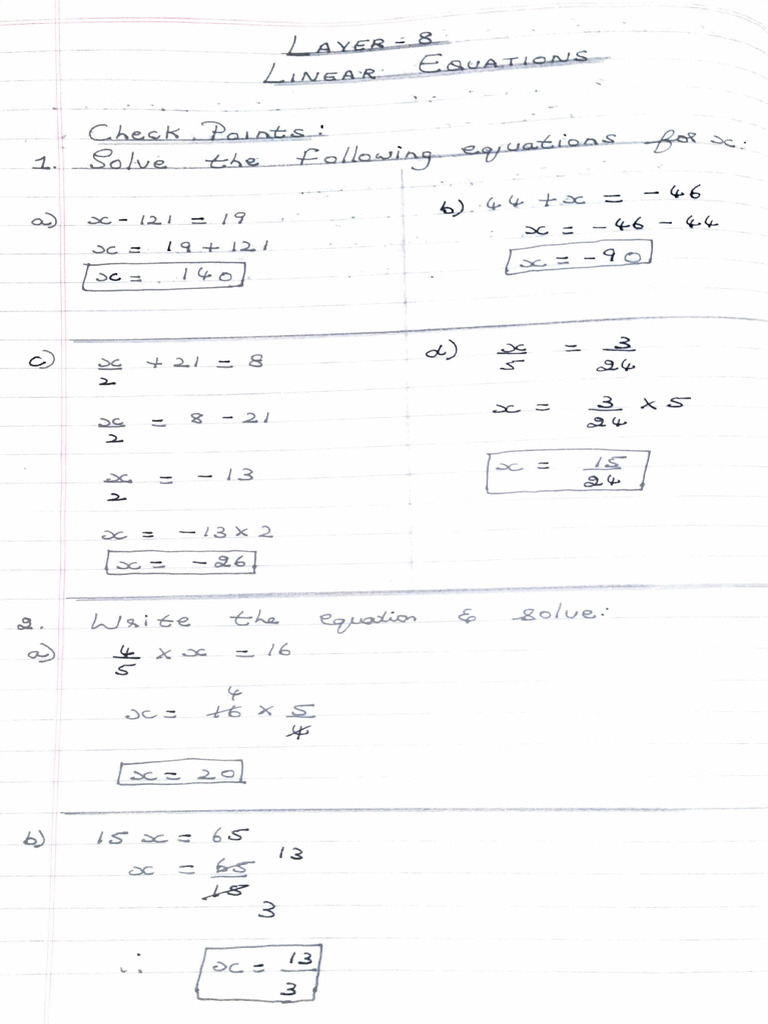 LAYER - 8
LINEAR EQUATIONS
Check Points:
1. Solve the following equations for x:
a) x - 121 = 19
x = 19 + 121
x = 140
b) 44 + x = -46
x = -46 - 44
x = -90
c) x/2 + 21 = 8
x/2 = 8 - 21
x/2 = -13
x = -13 × 2
x = -26
d) x/5 = 3/24
x = 3/24 × 5
x = 15/24
2. Write the equation & solve:
a) 4/5 × x = 16
4
x = 16 × 5/4
x = 20
b) 15 x = 65
x = 65/15 13
3
∴ x = 13/3